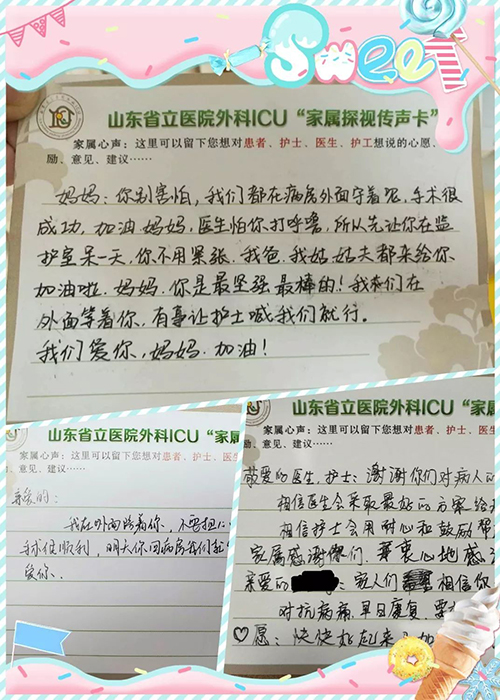 Sweet
山东省立医院外科ICU“家属探视传声卡”
家属心声：这里可以留下您想对患者、护士、医生、护工想说的心愿、
励、意见、建议……
妈妈：你别害怕，我们都在病房外面守着呢，手术很
成功，加油妈妈，医生怕你打呼噜，所以先让你在监
护室呆一天，你不用紧张，我爸，我姑姑夫都来给你
加油啦，妈妈，你是最坚强最棒的！我们在
外面等着你，有事让护士喊我们就行。
我们爱你，妈妈，加油！
山东省立医院外科ICU“家属
家属心声：这里可以留下您想对患者、护士、医生
励、意见、建议……
亲爱的：
我在外面等着你，不要担心
手术很顺利，明天你回病房我们
爱你.
山东省立医院外科ICU“家
家属心声：这里可以留下您想对患者、护
励、意见、建议……
敬爱的医生，护士：谢谢你们对病人的
相信医生会采取最好的方案给
相信护士会用耐心和鼓励帮
家属感谢你们，衷心地感
亲爱的 ：家人们 相信你
对抗病痛，早日康复，要
愿：快快好起来，加